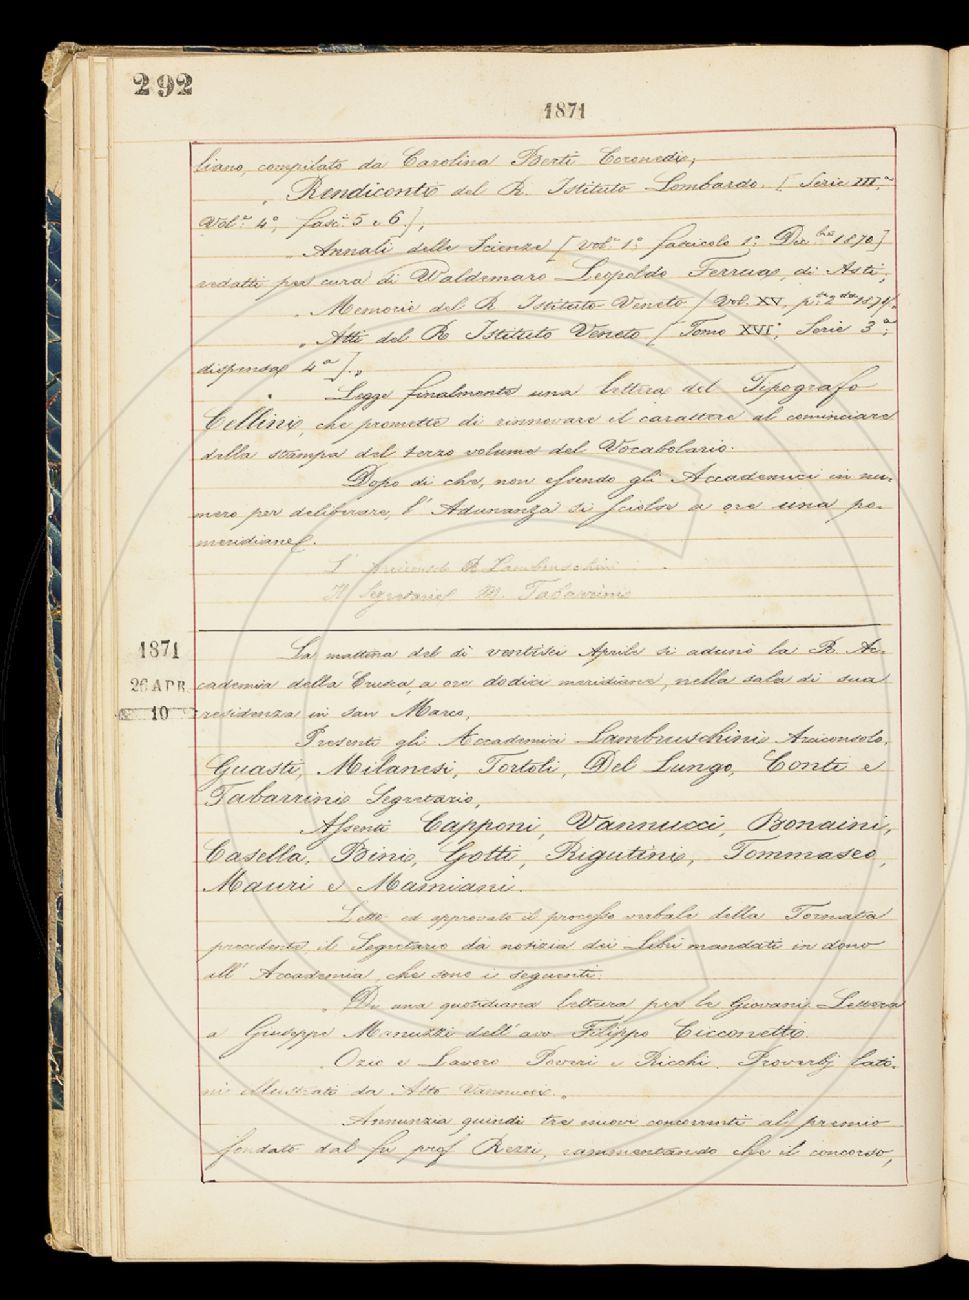 292
1871
liano, compilato da Carolina Berti Coronedi;
„ Rendiconti del R. Istituto Lombardo. [Serie III.ª
Vol.e 4º, fasc.i 5 e 6.],
„ Annali delle Scienze [Vol.e 1º, fascicolo 1º, Dic.bre 1870]
redatti per cura di Waldemaro Leopoldo Ferrua, di Asti;
„ Memorie del R. Istituto Veneto [Vol. XV. p.te 2.da 1871].
„ Atti del R. Istituto Veneto [Tomo XVIº, Serie 3ª,
dispensa 4ª].„
Legge finalmente una lettera del Tipografo
Cellini, che promette di rinnovare il carattere al cominciare
della stampa del terzo volume del Vocabolario.
Dopo di che, non essendo gli Accademici in nu-
mero per deliberare, l'Adunanza si sciolse a ore una po-
meridiane.
L'Arciconsolo R. Lambruschini
Il Segretario M. Tabarrini
1871
26 APR.
10
La mattina del dì ventisei Aprile si adunò la R. Ac-
cademia della Crusca, a ore dodici meridiane, nella sala di sua
residenza in San Marco.
Presenti gli Accademici Lambruschini Arciconsolo,
Guasti, Milanesi, Tortoli, Del Lungo, Conti e
Tabarrini Segretario,
Assenti Capponi, Vannucci, Bonaini,
Casella, Bini, Gotti, Rigutini, Tommaseo,
Mauri e Mamiani.
Letto ed approvato il processo verbale della Tornata
precedente, il Segretario dà notizia dei Libri mandati in dono
all'Accademia che sono i seguenti:
„ Di una quotidiana lettura per le Giovani. Lettera
a Giuseppe Manuzzi dell'avv Filippo Cicconetti.
„ Ozio e Lavoro Poveri e Ricchi. Proverbj lati-
ni illustrati da Atto Vannucci.„
Annunzia quindi tre nuovi concorrenti al premio
fondato dal fu prof Rezzi, rammentando che il concorso,